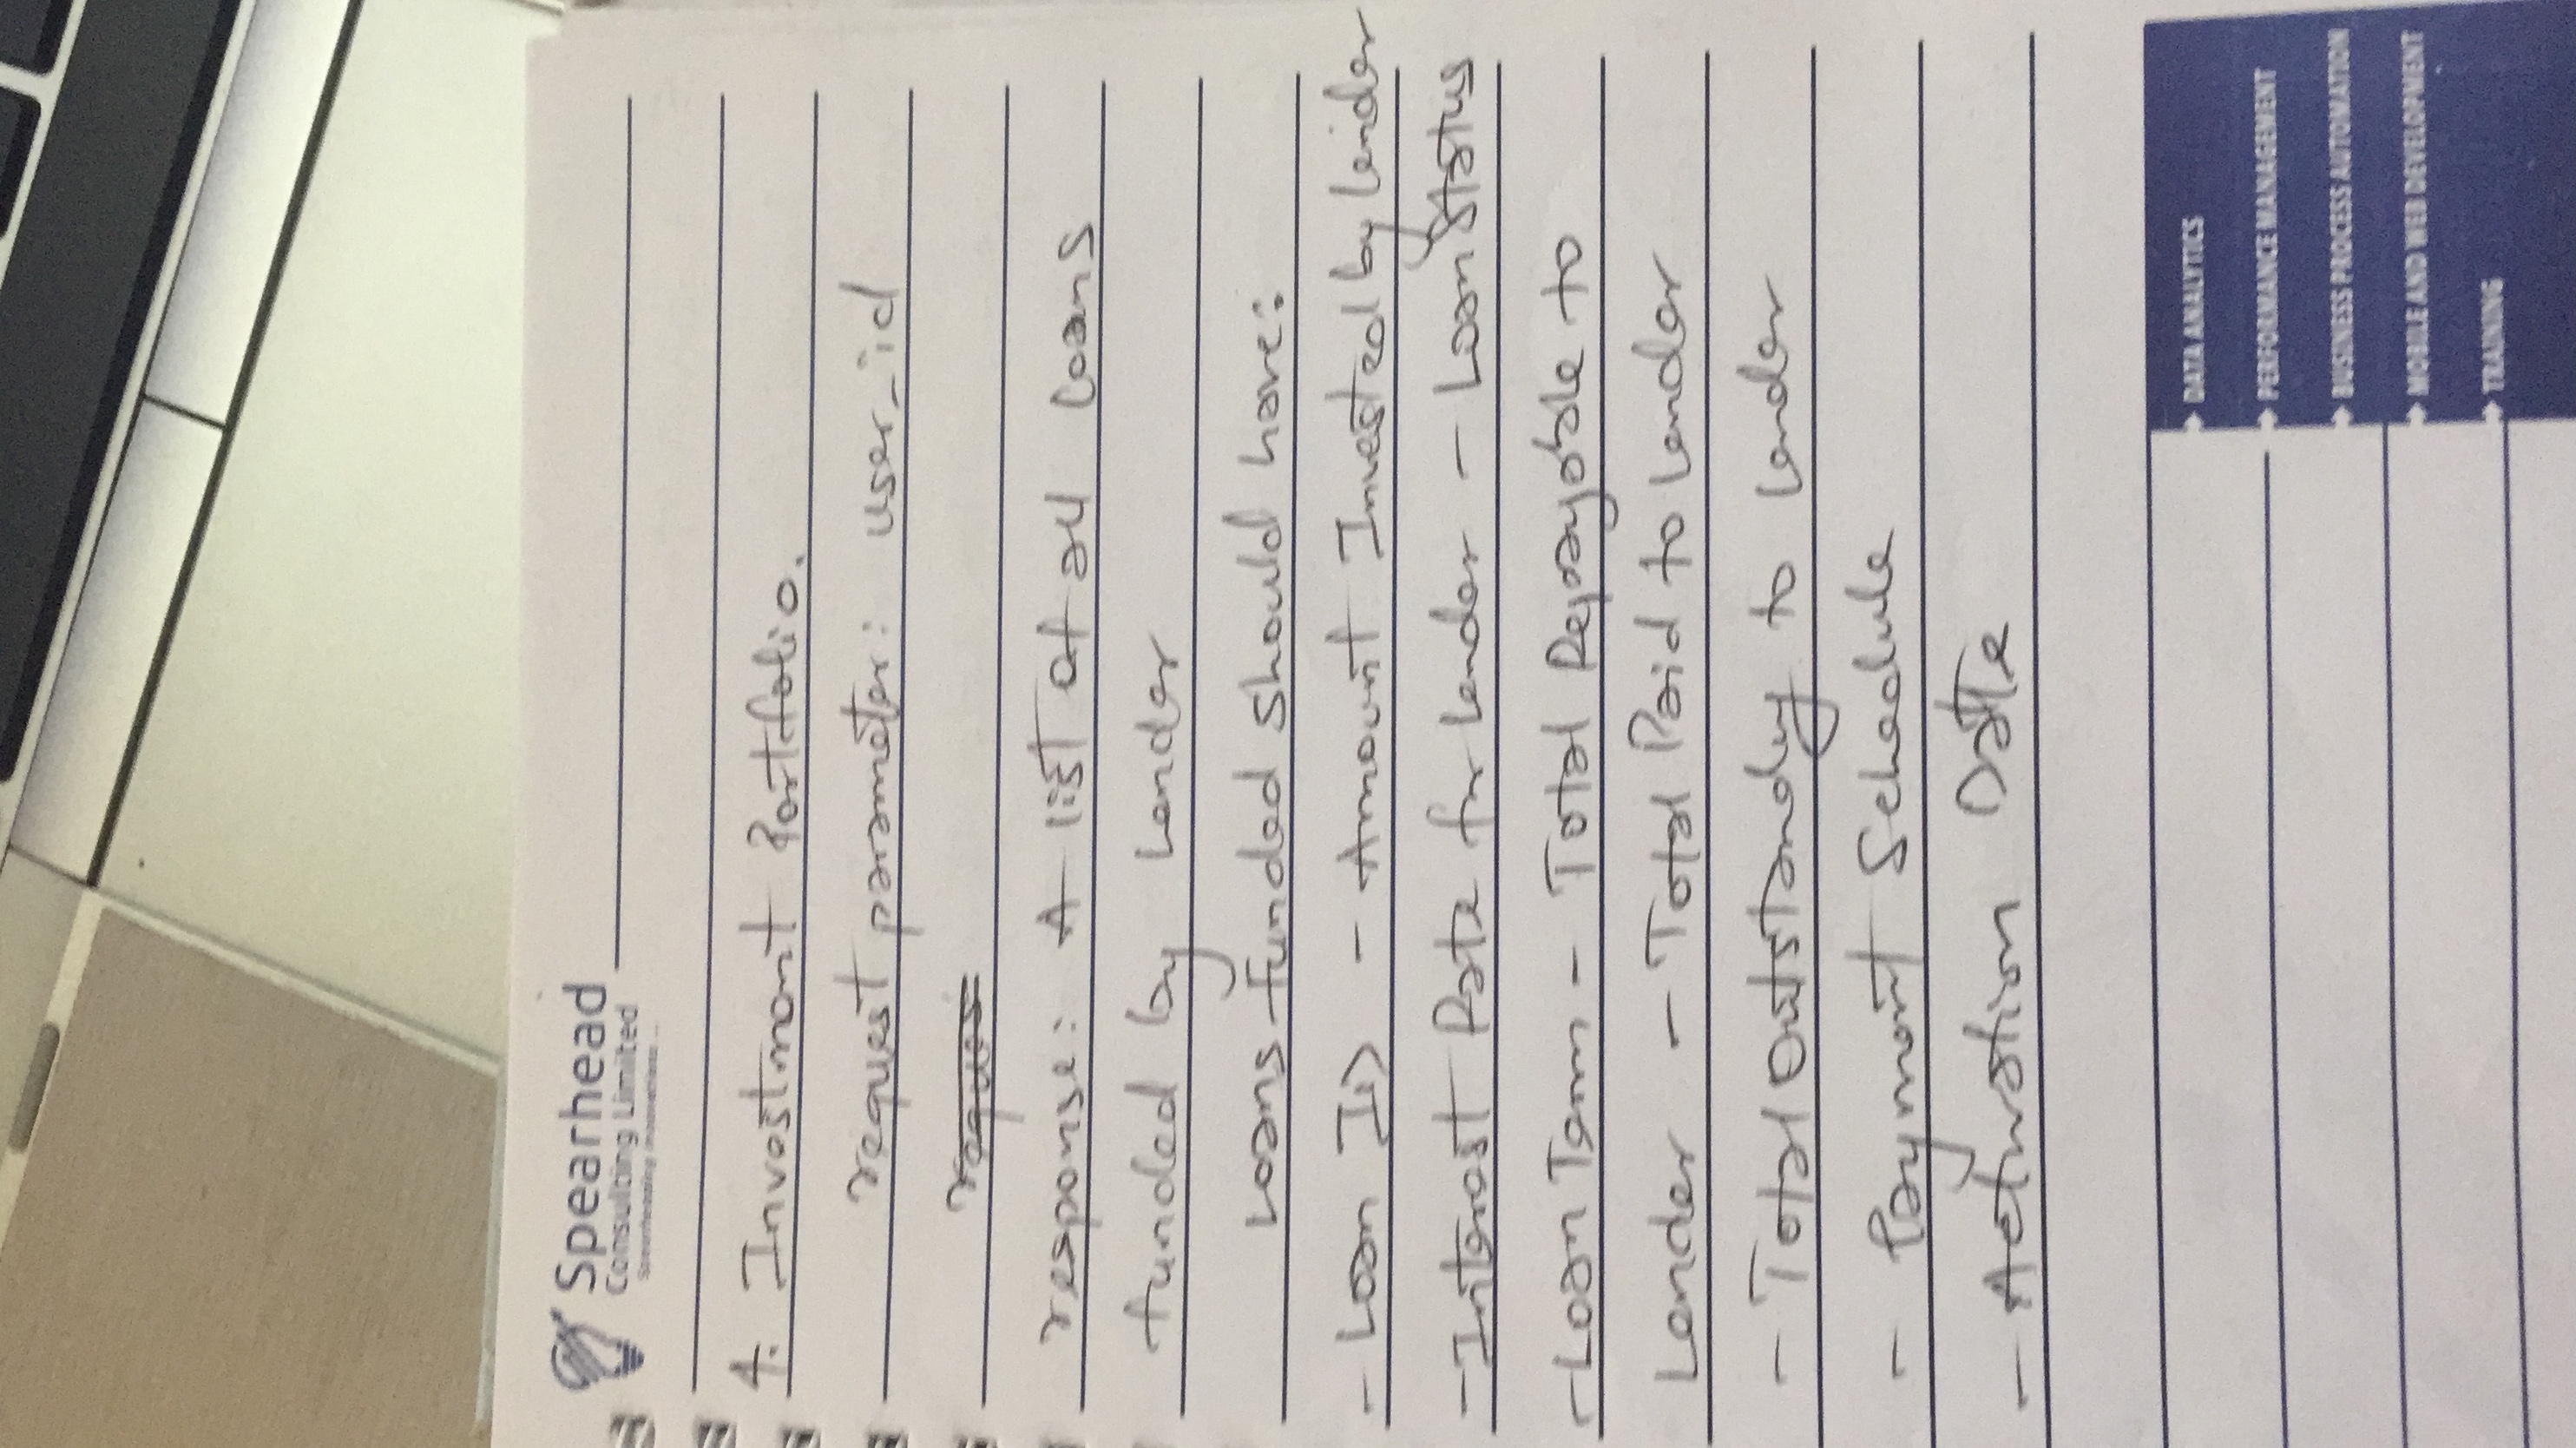 Spearhead
Consulting Limited
Spearheading Innovations ...
4. Investment Portfolio.
request parameter: user_id
reques
response: A list of all loans
funded by Lender
Loans funded should have:
- Loan ID - Amount Invested by lender
- Interest Rate for lender - Loan Status
- Loan Term - Total Repayable to
Lender - Total Paid to lender
- Total Outstanding to lender
- Payment Schedule
- Activation Date
DATA ANALYTICS
PERFORMANCE MANAGEMENT
BUSINESS PROCESS AUTOMATION
MOBILE AND WEB DEVELOPMENT
TRAINING